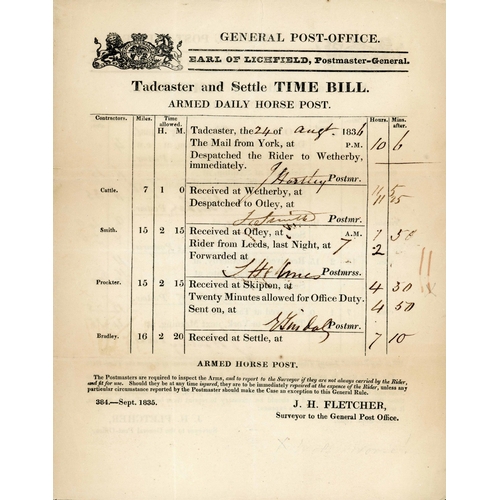 GENERAL POST-OFFICE.
EARL OF LICHFIELD, Postmaster-General.
Tadcaster and Settle TIME BILL.
ARMED DAILY HORSE POST.
Contractors. Miles. Time allowed. H. M. Hours. Min. after.
Tadcaster, the 24 of Augt. 1836
The Mail from York, at P.M. 10 6
Despatched the Rider to Wetherby, immediately.
Postmr.
Cattle. 7 1 0 Received at Wetherby, at 11 5
Despatched to Otley, at 11
Postmr.
Smith. 15 2 15 Received at Otley, at A.M.
Rider from Leeds, last Night, at 7
Forwarded at 2
Postmrss.
Prockter. 15 2 15 Received at Skipton, at 4 30
Twenty Minutes allowed for Office Duty.
Sent on, at 4 50
Postmr.
Bradley. 16 2 20 Received at Settle, at 7 10
ARMED HORSE POST.
The Postmasters are required to inspect the Arms, and to report to the Surveyor if they are not always carried by the Rider,
and fit for use. Should they be at any time injured, they are to be immediately repaired at the expence of the Rider, unless any
particular circumstance reported by the Postmaster should make the Case an exception to this General Rule.
384.—Sept. 1835.
J. H. FLETCHER,
Surveyor to the General Post Office.